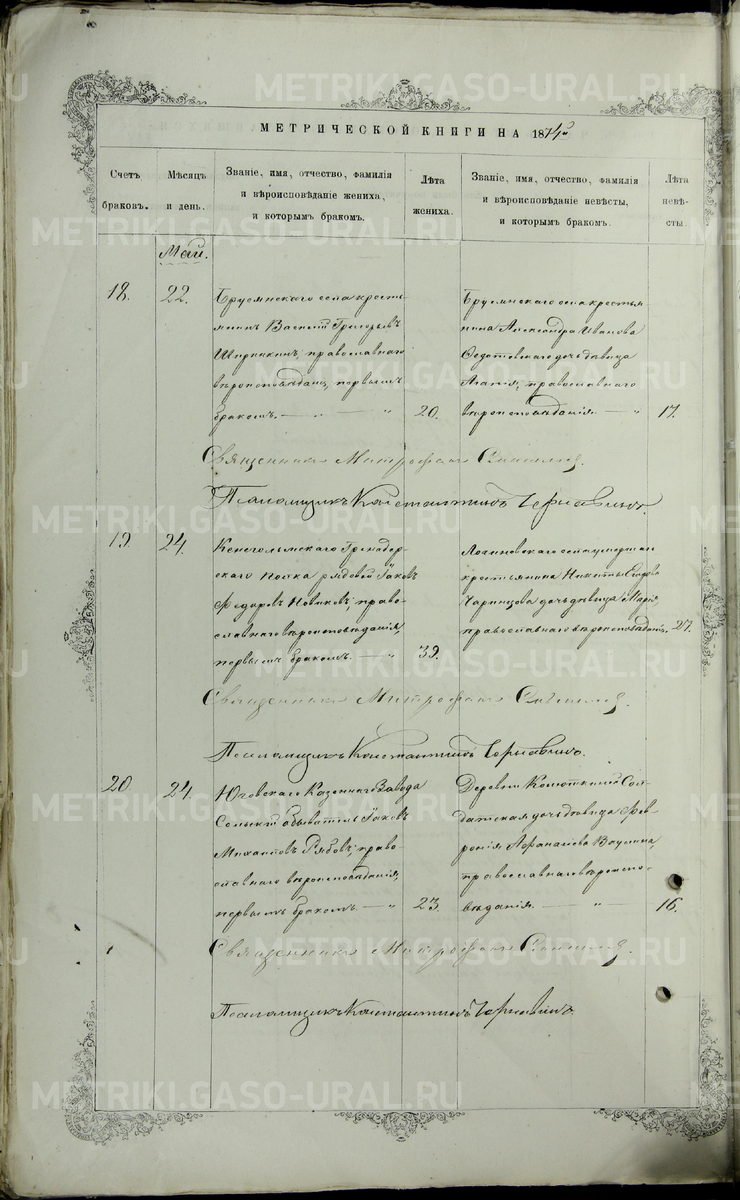 МЕТРИЧЕСКОЙ КНИГИ НА 1874й
Счетъ браковъ.
Мѣсяцъ и день.
Званіе, имя, отчество, фамилія и вѣроисповѣданіе жениха, и которымъ бракомъ.
Лѣта жениха.
Званіе, имя, отчество, фамилія и вѣроисповѣданіе невѣсты, и которымъ бракомъ.
Лѣта невѣсты.
Май.
18.
22.
Брусянскаго села кресть-
янинъ Василій Григорьевъ
православнаго
вѣроисповѣданія, первымъ
бракомъ. — „ — „
20.
Брусянскаго села крестья
нина Александра Иванова
дочь дѣвица
православнаго
вѣроисповѣданія — „
17.
Священникъ Митрофанъ
Псаломщикъ Константинъ Чернавинъ.
19.
24.
Кексгольмскаго Гренадер-
скаго полка рядовой Іаковъ
Федоровъ Новиковъ, право-
славнаго вѣроисповѣданія,
первымъ бракомъ. — „
39.
Логиновскаго села умершаго
крестьянина Никиты Егорова
дочь дѣвица Марія,
православнаго вѣроисповѣданія.
27.
Священникъ Митрофанъ
Псаломщикъ Константинъ Чернавинъ.
20.
24.
Юговскаго Казеннаго Завода
Сельскій обыватель Іаковъ
Михайловъ Рябовъ, право
славнаго вѣроисповѣданія,
первымъ бракомъ. — „
23.
Деревни Колюткиной Сол-
датская дочь дѣвица Фев-
ронія Афанасьева Ваулина,
православнаго вѣроиспо-
вѣданія. — „ —
16.
Священникъ Митрофанъ
Псаломщикъ Константинъ Чернавинъ
METRIKI.GASO-URAL.RU